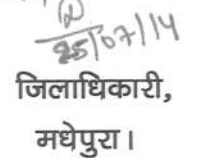 25/07/14
जिलाधिकारी,
मधेपुरा।